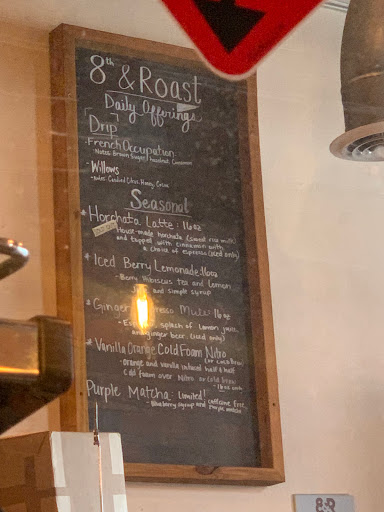 8th & Roast
Daily Offerings
Drip
-French Occupation
Notes: Brown Sugar, hazelnut, Cinnamon
-Willows
-notes: Candied Citrus, Honey, Cocoa
Seasonal
*Horchata Latte: 16oz
House-made horchata (sweet rice milk)
and topped with cinnamon with
a choice of espresso (iced only)
*Iced Berry Lemonade: 16oz
-Berry hibiscus tea and lemon
and simple syrup
*Ginger Mule: 16oz
splash of lemon juice,
ginger beer (iced only)
*Vanilla Orange Cold Foam Nitro
(or cold brew)
-orange and vanilla infused half & half
cold foam over nitro or cold brew
-16oz only
Purple Matcha: Limited!
-blueberry syrup and caffeine free
purple matcha
8&R
ROAST